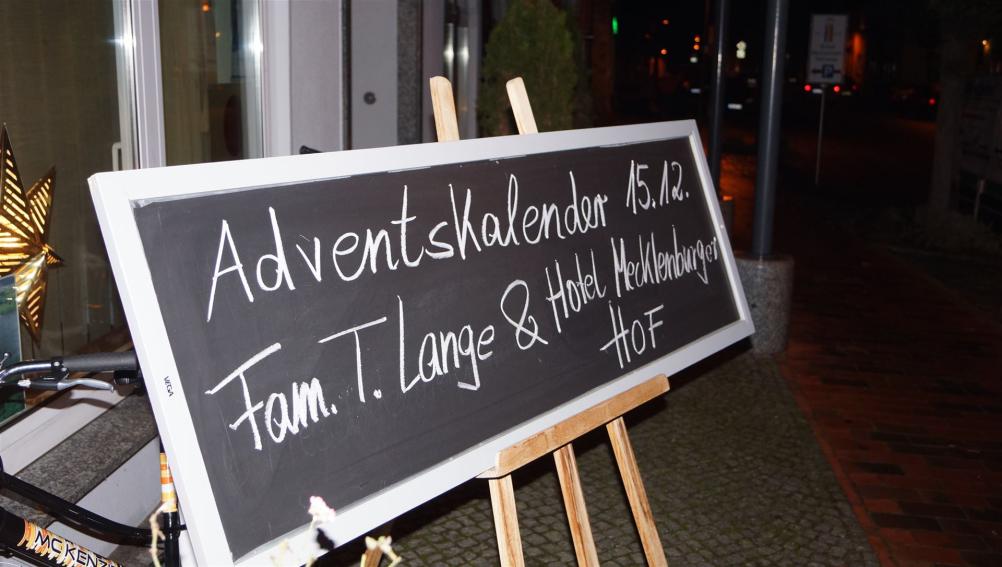 Adventskalender 15.12.
Fam. T. Lange & Hotel Mecklenburger
HOF
VEGA
MCKENZ
P